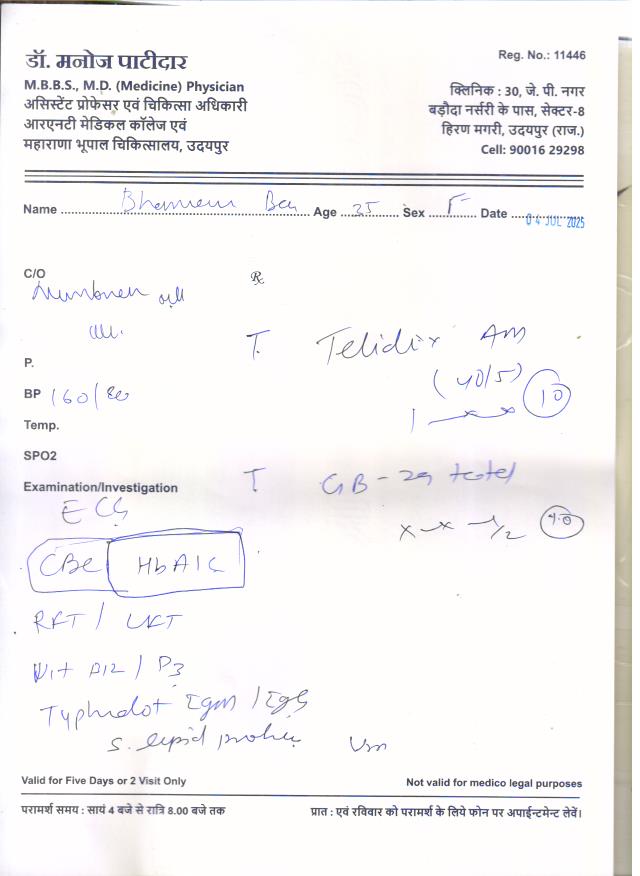 डॉ. मनोज पाटीदार
M.B.B.S., M.D. (Medicine) Physician
असिस्टेंट प्रोफेसर एवं चिकित्सा अधिकारी
आरएनटी मेडिकल कॉलेज एवं
महाराणा भूपाल चिकित्सालय, उदयपुर
Reg. No.: 11446
क्लिनिक : 30, जे. पी. नगर
बड़ौदा नर्सरी के पास, सेक्टर-8
हिरण मगरी, उदयपुर (राज.)
Cell: 90016 29298
Name Age 35 Sex F Date 04 JUL 2025
C/O
℞
P.
BP 160/80
Temp.
SPO2
Examination/Investigation
T. AM
(40/5) 10
1 — x — x
T
x — x — 1/2
ECG
CBC HbA1C
RFT / LFT
Vit B12 / D3
Typhidot IgM / IgG
S. lipid profile
Valid for Five Days or 2 Visit Only
Not valid for medico legal purposes
परामर्श समय : सायं 4 बजे से रात्रि 8.00 बजे तक
प्रात : एवं रविवार को परामर्श के लिये फोन पर अपाईन्टमेन्ट लेवें।